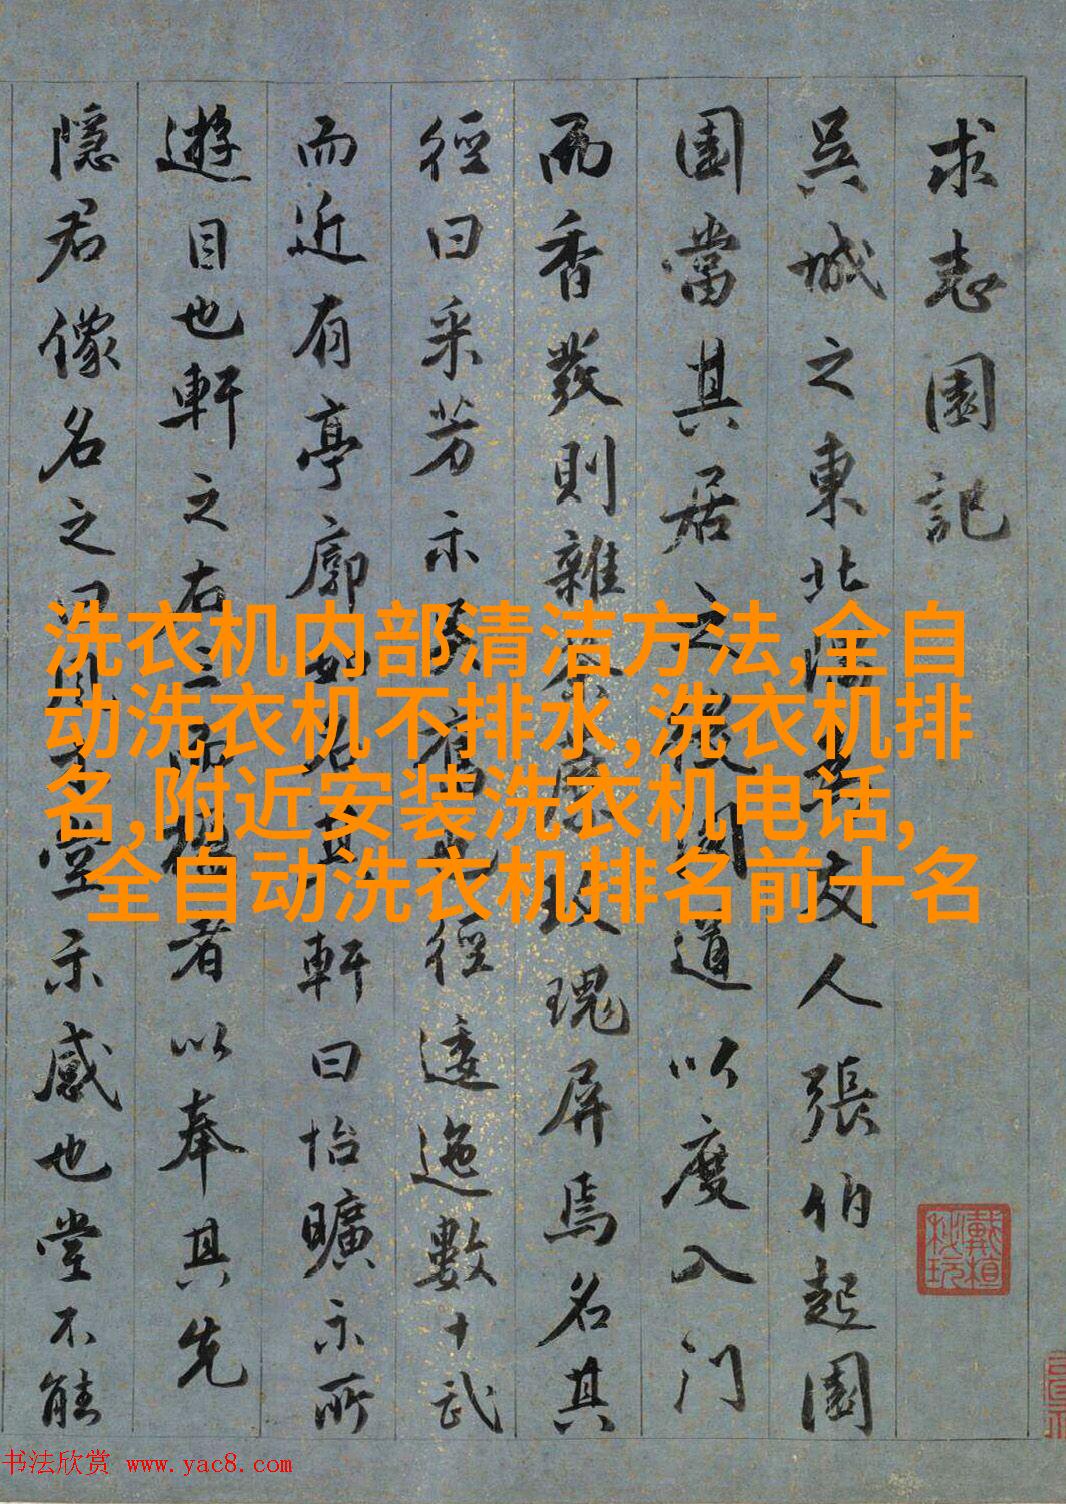 求志園記
吳城之東北友人張伯起園
園當其居之後道以度入門
而香發則雜玫瑰屏焉名其
徑曰采芳示徑逶迤數十武
而近有亭廓如其軒曰怡曠示所
遊目也軒之右三楹者以奉其先
隱君像名之曰風堂示感也堂不能
戴植秘玩
洗衣机内部清洁方法,全自
动洗衣机不排水,洗衣机排
名,附近安装洗衣机电话,
全自动洗衣机排名前十名
书法欣赏 www.yac8.com